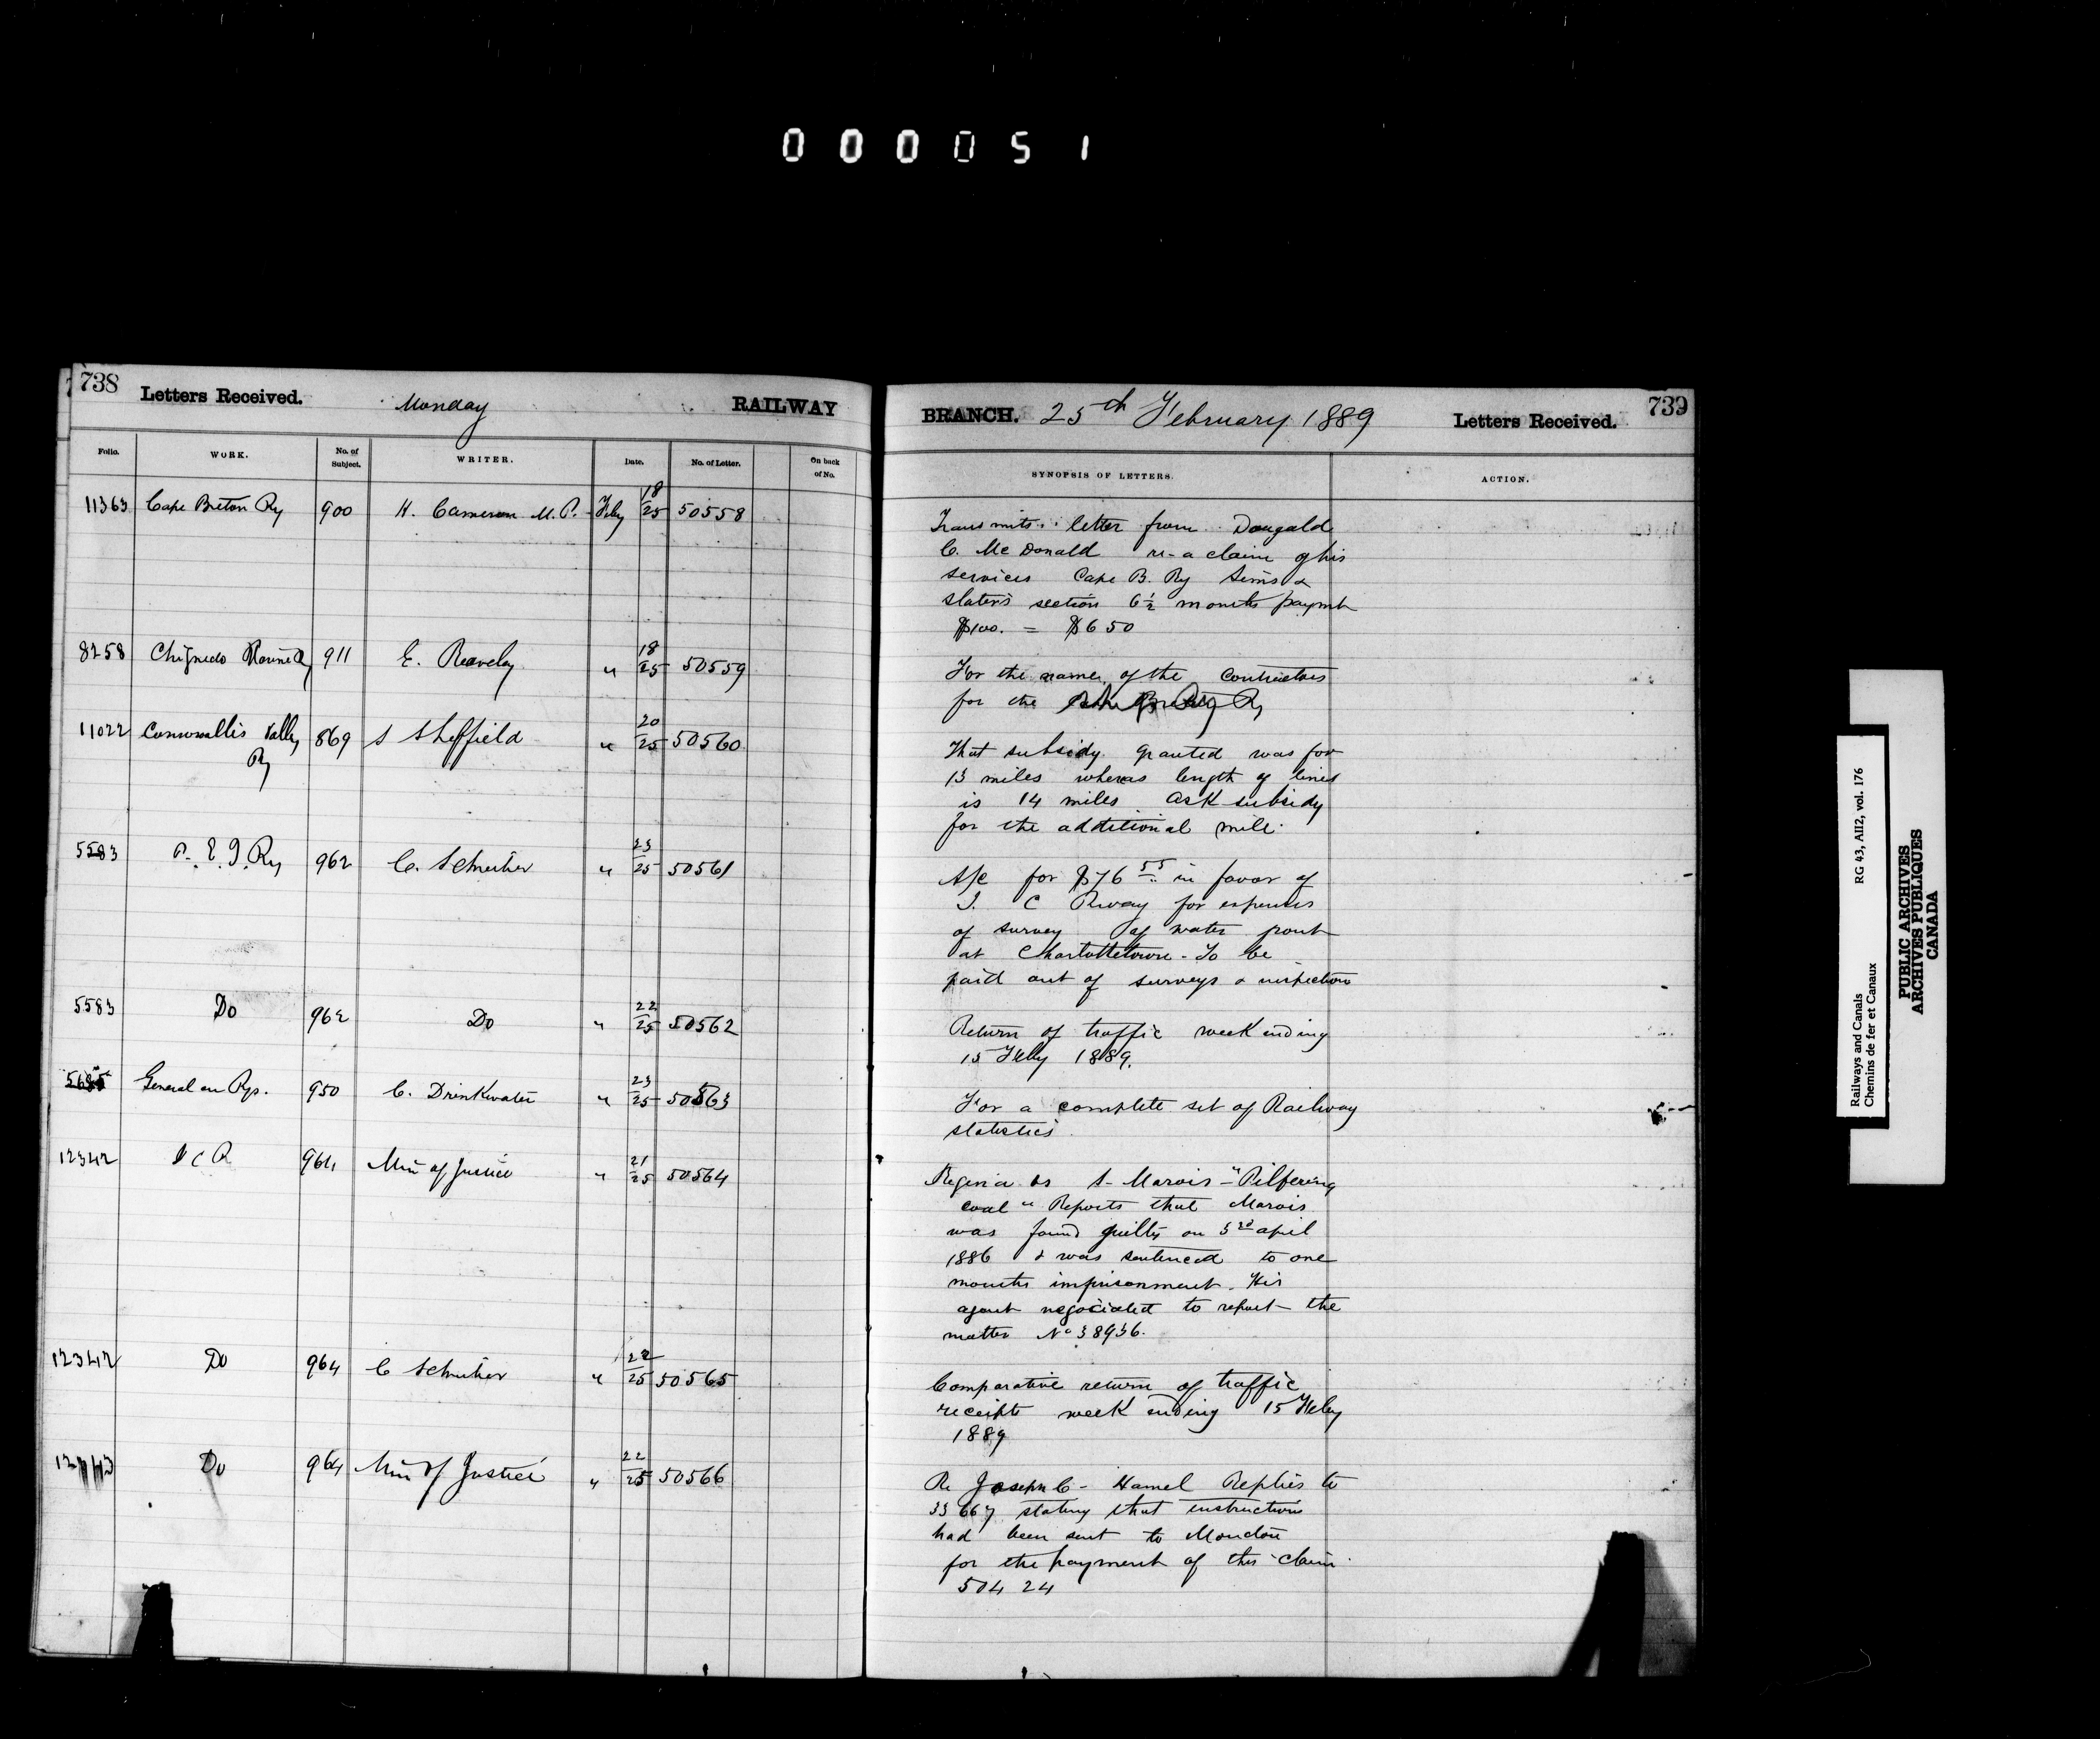 000051
738 Letters Received. Monday RAILWAY
BRANCH. 25th February 1889 Letters Received. 739
Folio. WORK. No. of Subject. WRITER. Date. No. of Letter. On back of No.
SYNOPSIS OF LETTERS. ACTION.
11363 Cape Breton Ry 900 H. Cameron M.P. Feby 18/25 50558
Transmits letter from Dougald
C. McDonald re a claim of his
services Cape B. Ry Sims &
Slater's section 6½ months paymt
$100. = $650
8258 Chignecto Marine Ry 911 E. Reaveley " 18/25 50559
For the names of the Contractors
for the Ry
11022 Cornwallis Valley 869 S Sheffield " 20/25 50560
Ry
That subsidy granted was for
13 miles whereas length of lines
is 14 miles. Ask subsidy
for the additional mile.
5583 P. E. I Ry 962 C. Schreiber " 23/25 50561
A/c for $76 55 in favor of
I. C Rway for expenses
of survey of water front
at Charlottetown. To be
paid out of surveys & inspections
5583 Do 962 Do " 22/25 50562
Return of traffic week ending
15 Feby 1889.
General on Rys. 950 C. Drinkwater " 23/25 50563
For a complete set of Railway
statistics
12342 I C R 964 Min of Justice " 21/25 50564
Regina vs S. Marois - "Pilfering
coal" Reports that Marois
was found guilty on 3rd april
1886 & was sentenced to one
months imprisonment. His
agent negociated to report the
matter No 38936.
12342 Do 964 C Schreiber " 22/25 50565
Comparative return of traffic
receipts week ending 15 Feby
1889
Do 964 Min of Justice " 22/25 50566
Re Joseph C. Hamel Replies to
33667 stating that instructions
had been sent to Moncton
for the payment of this claim.
50424
Railways and Canals RG 43, AII2, vol. 176
Chemins de fer et Canaux
PUBLIC ARCHIVES
ARCHIVES PUBLIQUES
CANADA